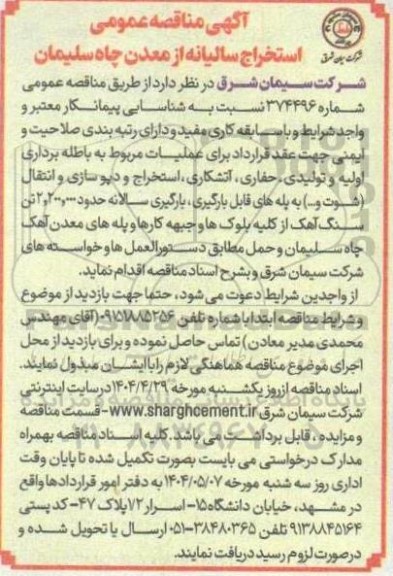 آگهی مناقصه عمومی
استخراج سالیانه از معدن چاه سلیمان
شرکت سیمان شرق
شرکت سیمان شرق در نظر دارد از طریق مناقصه عمومی
شماره ۳۷۴۴۹۶ نسبت به شناسایی پیمانکار معتبر و
واجد شرایط و با سابقه کاری مفید و دارای رتبه بندی صلاحیت و
ایمنی جهت عقد قرارداد برای عملیات مربوط به باطله برداری
اولیه و تولیدی، حفاری، آتشکاری، استخراج و دپو سازی و انتقال
(شوت و..) به پله های قابل بارگیری، بارگیری سالانه حدود ۲,۲۰۰,۰۰۰ تن
سنگ آهک از کلیه بلوک ها و جبهه کارها و پله های معدن آهک
چاه سلیمان و حمل مطابق دستورالعمل ها و خواسته های
شرکت سیمان شرق و بشرح اسناد مناقصه اقدام نماید.
از واجدین شرایط دعوت می شود، حتما جهت بازدید از موضوع
و شرایط مناقصه ابتدا با شماره تلفن ۰۹۱۵۱۸۸۵۲۵۶ (آقای مهندس
محمدی مدیر معادن) تماس حاصل نموده و برای بازدید از محل
اجرای موضوع مناقصه هماهنگی لازم را با ایشان مبذول نمایند.
اسناد مناقصه از روز یکشنبه مورخه ۱۴۰۴/۴/۲۹ در سایت اینترنتی
شرکت سیمان شرق www.sharghcement.ir - قسمت مناقصه
و مزایده، قابل برداشت می باشد. کلیه اسناد مناقصه بهمراه
مدارک درخواستی می بایست بصورت تکمیل شده تا پایان وقت
اداری روز سه شنبه مورخه ۱۴۰۴/۰۵/۰۷ به دفتر امور قراردادها واقع
در مشهد، خیابان دانشگاه ۱۵- اسرار ۷/۲ پلاک ۴۷- کد پستی
۹۱۳۸۸۴۵۱۶۴ تلفن ۳۸۴۸۰۳۶۵-۰۵۱ ارسال یا تحویل شده و
در صورت لزوم رسید دریافت نمایند.